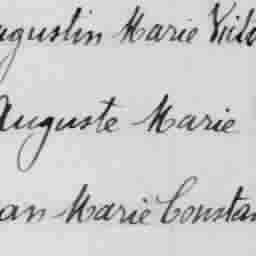 ugustin Marie Vict
Auguste Marie
an Marie Constan